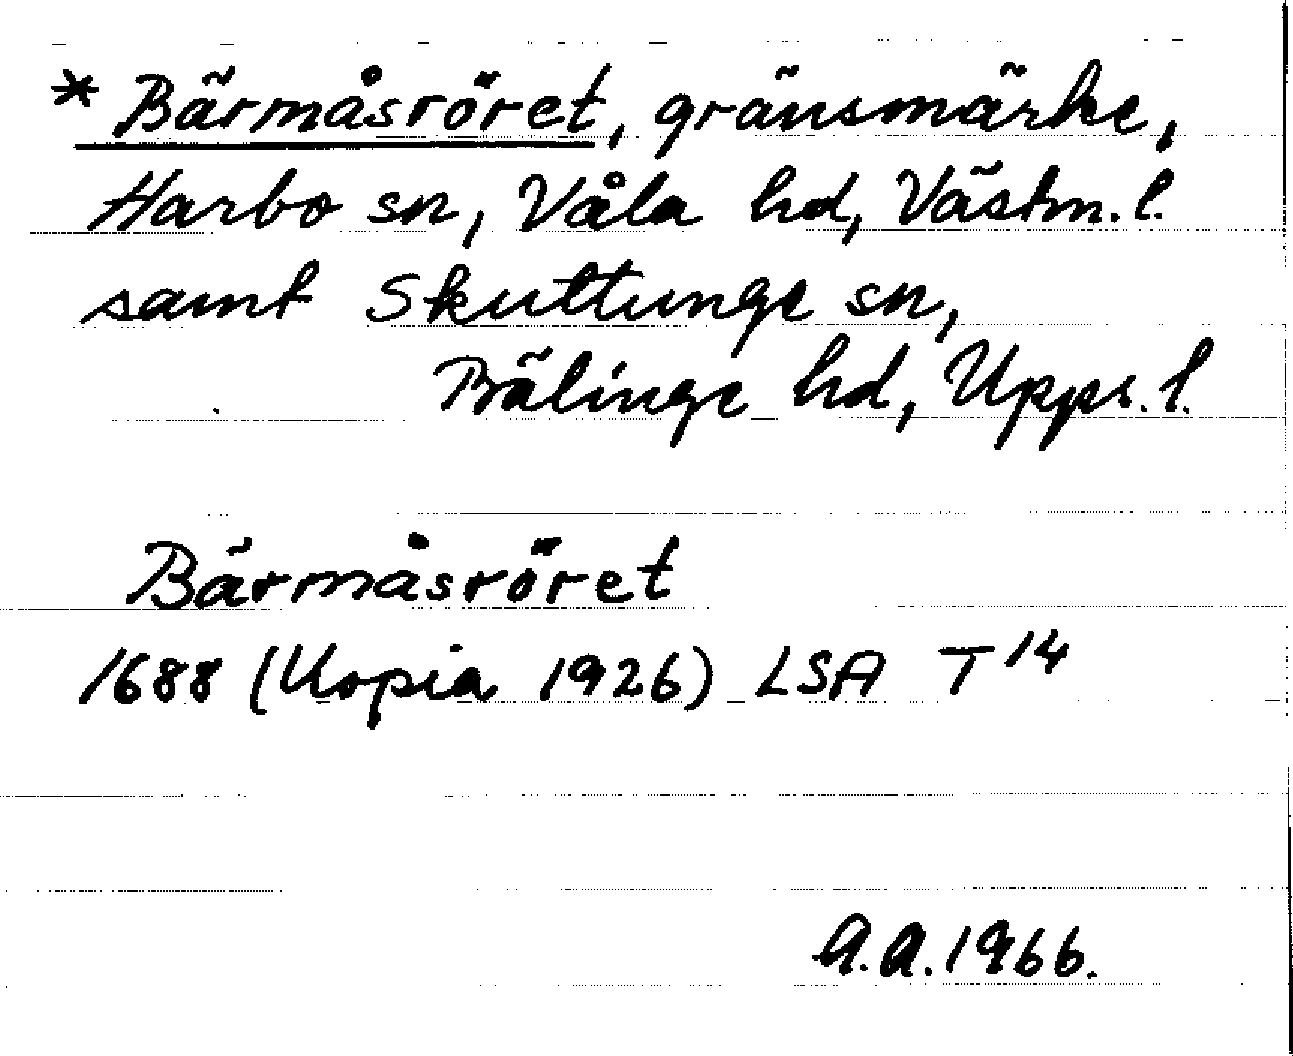 * Bärmåsröret, gränsmärke,
Harbo sn, Våla hd, Västm. l.
samt Skuttunge sn,
Bälinge hd, Upps. l.
Bärmåsröret
1688 (Kopia 1926) LSA T 14
A.A. 1966.